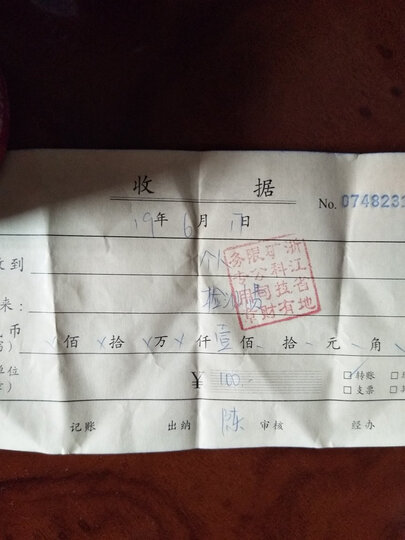 收 据
No. 0748231
19年 6月 17日
收到 个人
来: 检测费
币 佰 拾 万 仟 壹 佰 拾 元 角
¥ 100.— □ 转账
□ 支票
记账 出纳 陈 审核 经办
浙江省地
矿科技有
限公司财
务专用章